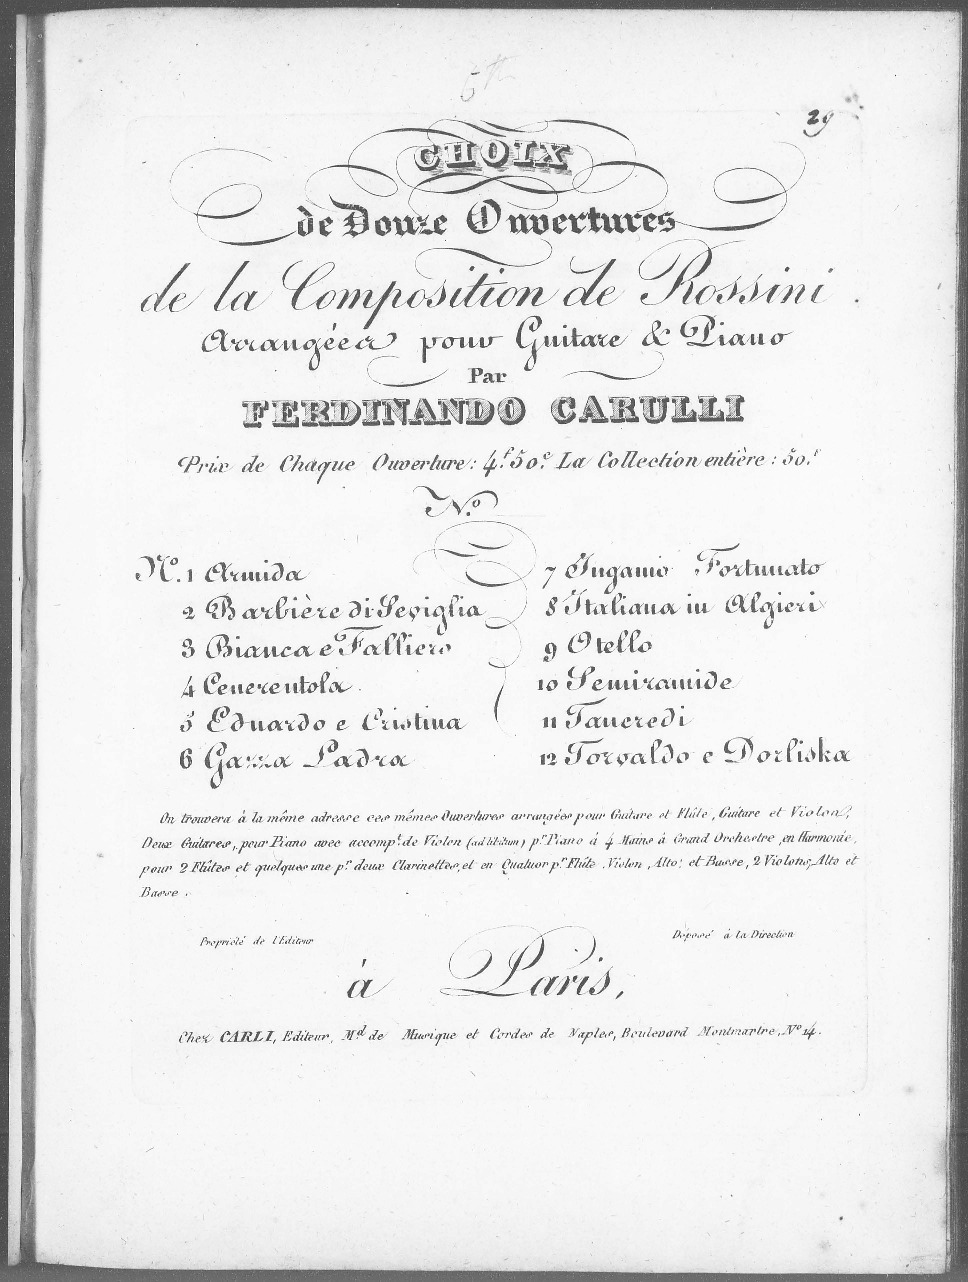 6th
29
CHOIX
de Douze Ouvertures
de la Composition de Rossini.
Arrangées pour Guitare & Piano
Par
FERDINANDO CARULLI
Prix de Chaque Ouverture: 4.f 50.c La Collection entière: 50.f
N.o
No. 1 Armida
2 Barbière di Seviglia
3 Bianca e Falliero
4 Cenerentola.
5 Eduardo e Cristina
6 Gazza Ladra
7 Inganno Fortunato
8 Italiana in Algieri
9 Otello
10 Semiramide
11 Tancredi
12 Torvaldo e Dorliska
On trouvera à la même adresse ces mêmes Ouvertures arrangées pour Guitare et Flûte, Guitare et Violon,
Deux Guitares, pour Piano avec accomp.t de Violon (ad libitum) p.r Piano à 4 Mains à Grand Orchestre, en Harmonie,
pour 2 Flûtes et quelques une p.r deux Clarinettes, et en Quatuor p.r Flûte, Violon, Alto, et Basse, 2 Violons, Alto et
Basse.
Propriété de l'Editeur
Déposé à la Direction
à Paris,
Chez CARLI, Editeur, M.d de Musique et Cordes de Naples, Boulevard Montmartre, No 14.